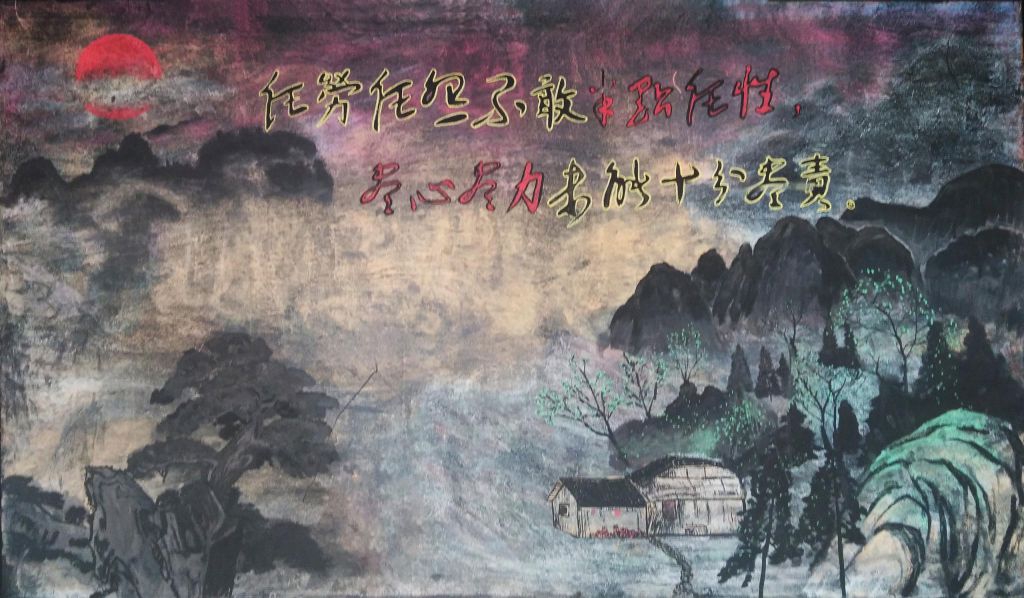 任勞任怨不敢半點任性，
尽心尽力未能十分尽責。